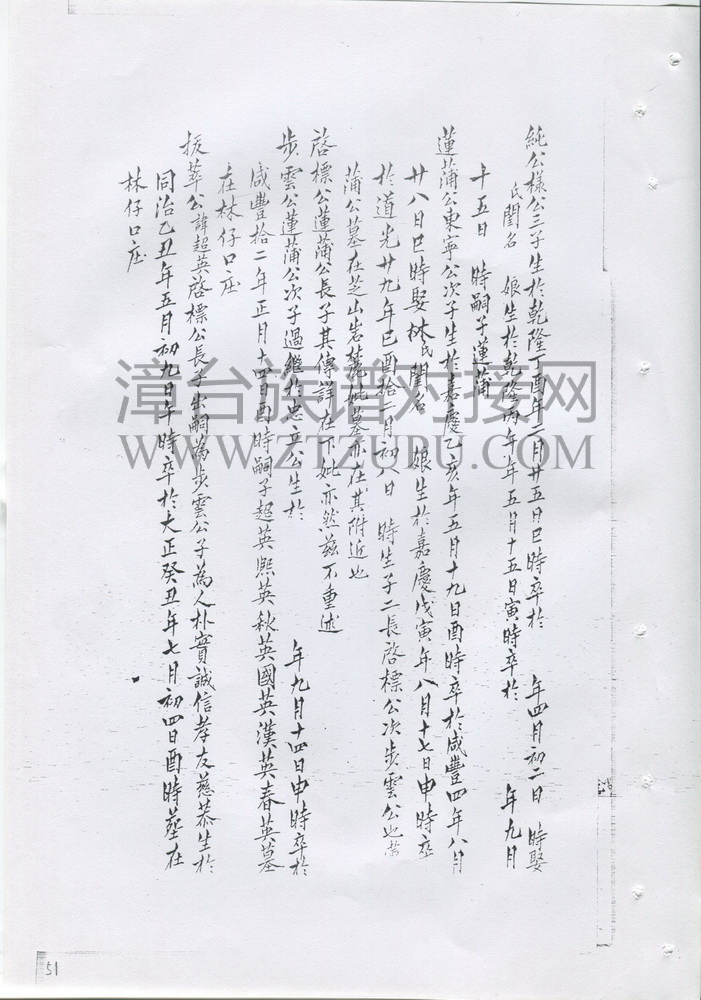 純公様公三子生於乾隆丁酉年二月廿五日巳時卒於 年四月初二日 時娶
氏閨名 娘生於乾隆丙午年五月十五日寅時卒於 年九月
十五日 時嗣子蓮蒲
蓮蒲公東寧公次子生於嘉慶乙亥年五月十九日酉時卒於咸豐四年八月
廿八日巳時娶林氏閨名 娘生於嘉慶戊寅年八月十七日申時卒
於道光廿九年己酉拾一月初八日 時生子二長啓標公次步雲公也
蒲公墓在芝山岩麓妣墓亦在其附近也
啓標公蓮蒲公長子其傳詳在下妣亦然茲不重述
步雲公蓮蒲公次子過繼於忠立公生於 年九月十四日申時卒於
咸豐拾二年正月十四日酉時嗣子超英熙英秋英國英漢英春英墓
在林仔口庄
拔萃公諱超英啓標公長子出嗣為步雲公子為人朴實誠信孝友慈恭生於
同治乙丑年五月初九日午時卒於大正癸丑年七月初四日酉時墓在
林仔口庄
漳台族谱对接网
WWW.ZTZUPU.COM
51